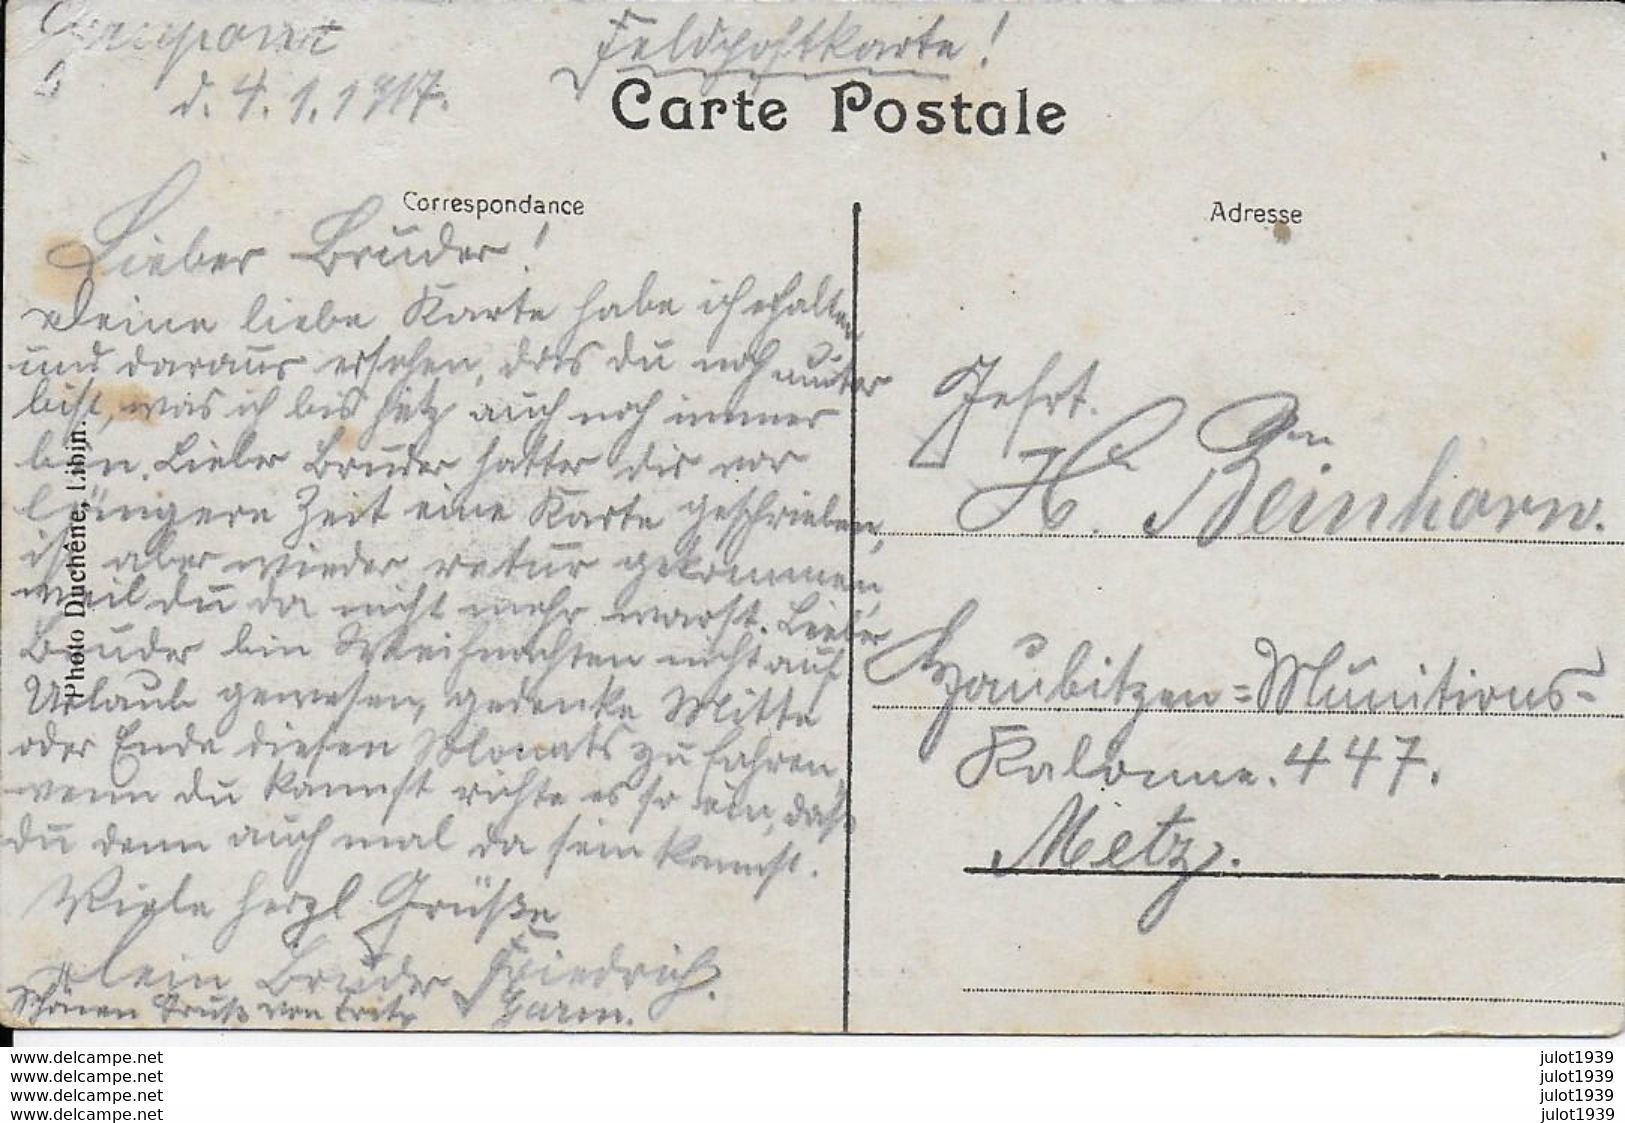 Grupont
d. 4.1.1917.
Feldpostkarte!
Carte Postale
Correspondance
Adresse
Lieber Bruder!
Deine liebe Karte habe ich erhalten
und daraus ersehen, das du noch
bist, was ich bis jetz auch noch immer
bin. Lieber Bruder hatte dir vor
längere Zeit eine Karte geschrieben,
ist aber wieder retur gekommen,
weil du da nicht mehr warst. Lieber
Bruder bin Weihnachten nicht auf
Urlaub gewesen, gedenke Mitte
oder Ende diesen Monats zu fahren,
wenn du kannst richte es so ein, daß
du denn auch mal da sein kannst.
Viele herzl Grüße
Dein Bruder Friedrich.
Schönen Gruß von Fritz
Photo Duchêne, Libin.
Gefrt.
H. Beinhorn.
Haubitzen=Munitions-
Kolonne. 447.
Metz.
www.delcampe.net
www.delcampe.net
www.delcampe.net
www.delcampe.net
julot1939
julot1939
julot1939
julot1939